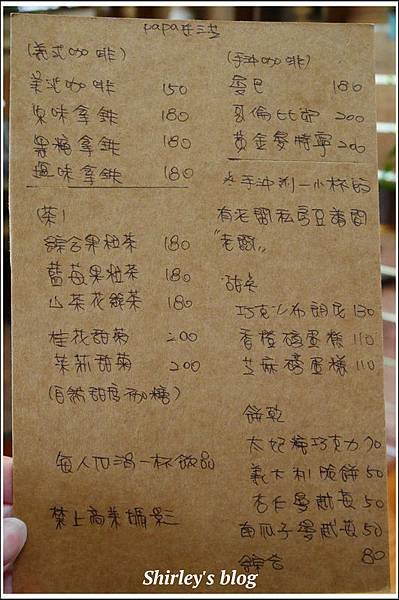 papa在三芝
(義式咖啡)
美式咖啡 150
原味拿鐵 180
黑糖拿鐵 180
風味拿鐵 180
(茶)
綜合果粒茶 180
藍莓果粒茶 180
山茶花綠茶 180
桂花甜菊 200
茉莉甜菊 200
(自然甜度不加糖)
每人低消一杯飲品
禁止商業攝影
(手沖咖啡)
曼巴 180
哥倫比亞 200
黃金曼特寧 200
※手沖附一小杯的
有老闆私房豆請問
"老闆"
甜點
巧克力布朗尼 130
香橙磅蛋糕 110
芝麻磅蛋糕 110
餅乾
太妃糖巧克力 70
義大利脆餅 50
杏仁蔓越莓 50
南瓜子蔓越莓 50
綜合 80
Shirley's blog